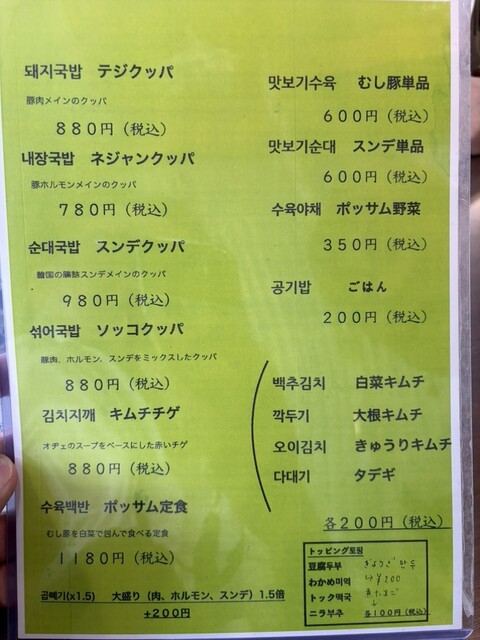 돼지국밥 テジクッパ
豚肉メインのクッパ
880円（税込）
내장국밥 ネジャンクッパ
豚ホルモンメインのクッパ
780円（税込）
순대국밥 スンデクッパ
韓国の腸詰スンデメインのクッパ
980円（税込）
섞어국밥 ソッコクッパ
豚肉、ホルモン、スンデをミックスしたクッパ
880円（税込）
김치지깨 キムチチゲ
オヂェのスープをベースにした赤いチゲ
880円（税込）
수육백반 ポッサム定食
むし豚を白菜で包んで食べる定食
1180円（税込）
곱빼기(x1.5) 大盛り（肉、ホルモン、スンデ）1.5倍
+200円
맛보기수육 むし豚単品
600円（税込）
맛보기순대 スンデ単品
600円（税込）
수육야채 ポッサム野菜
350円（税込）
공기밥 ごはん
200円（税込）
백추김치 白菜キムチ
깍두기 大根キムチ
오이김치 きゅうりキムチ
다대기 タデギ
各200円（税込）
トッピング토핑
豆腐두부 ぎょうざ 만두
わかめ미역 ¥200
トック떡국 煮たまご
ニラ부추 各100円（税込）